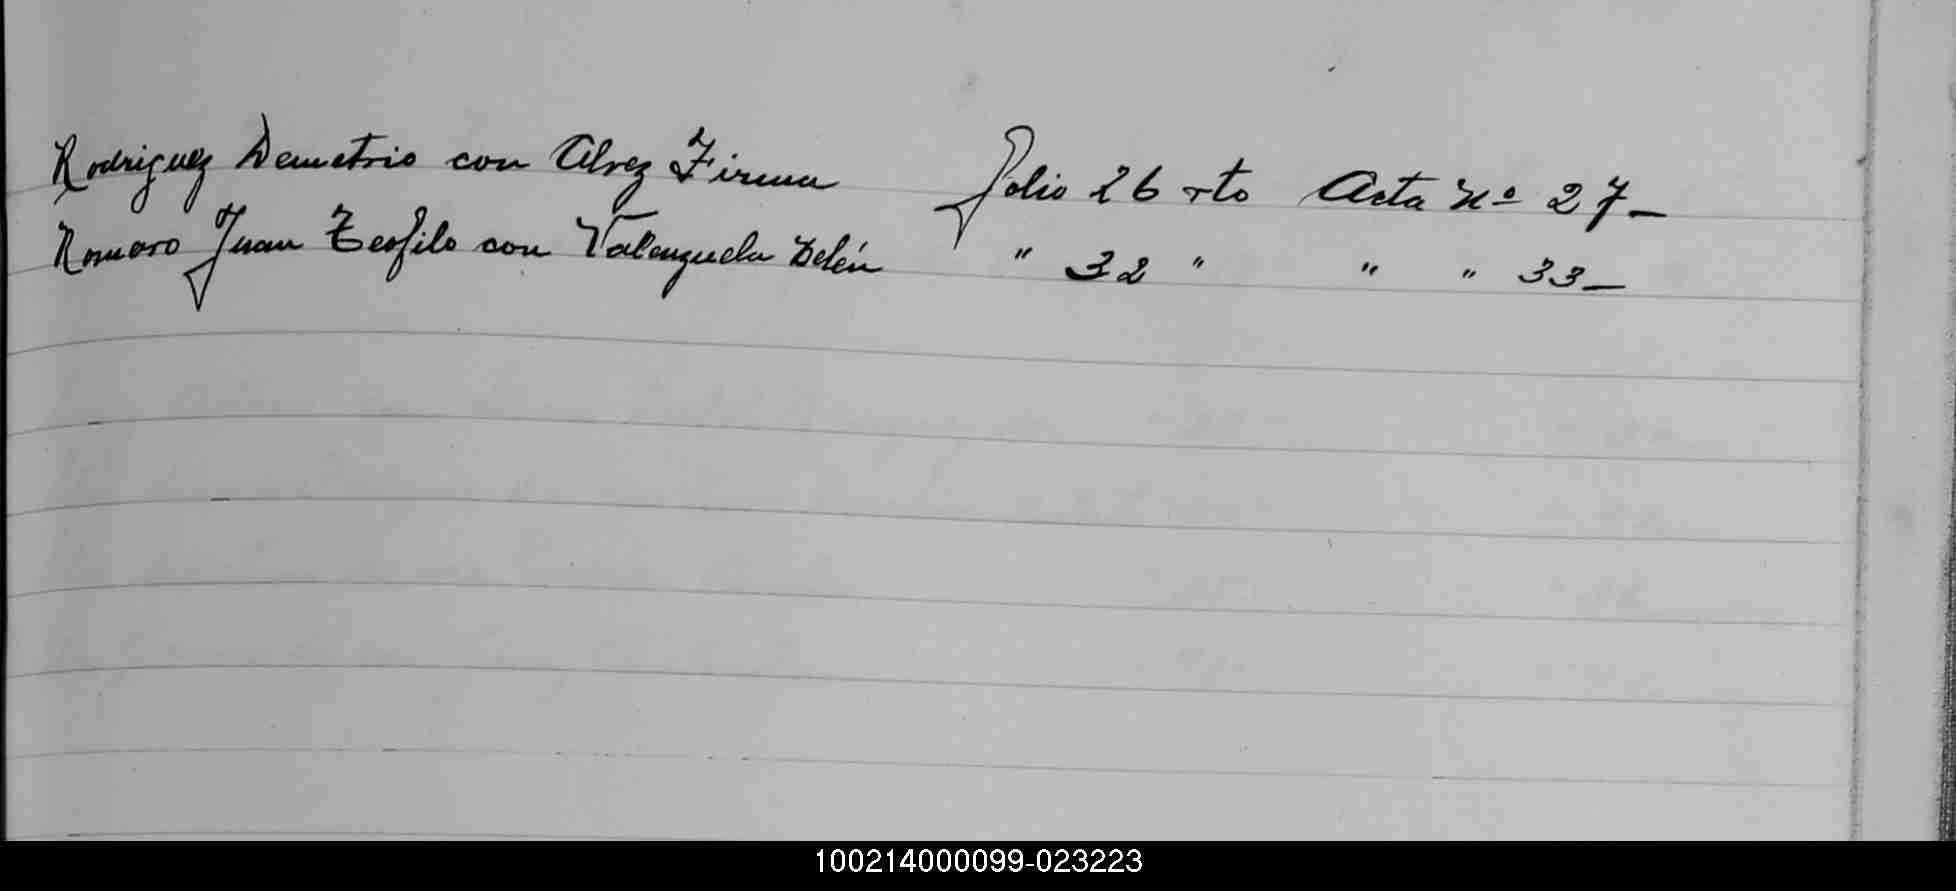 Rodriguez Demetrio con Alvez Firma Folio 26 vto Acta Nº 27—
Romero Juan Teofilo con Valenzuela Belén " 32 " " " 33—
100214000099-023223